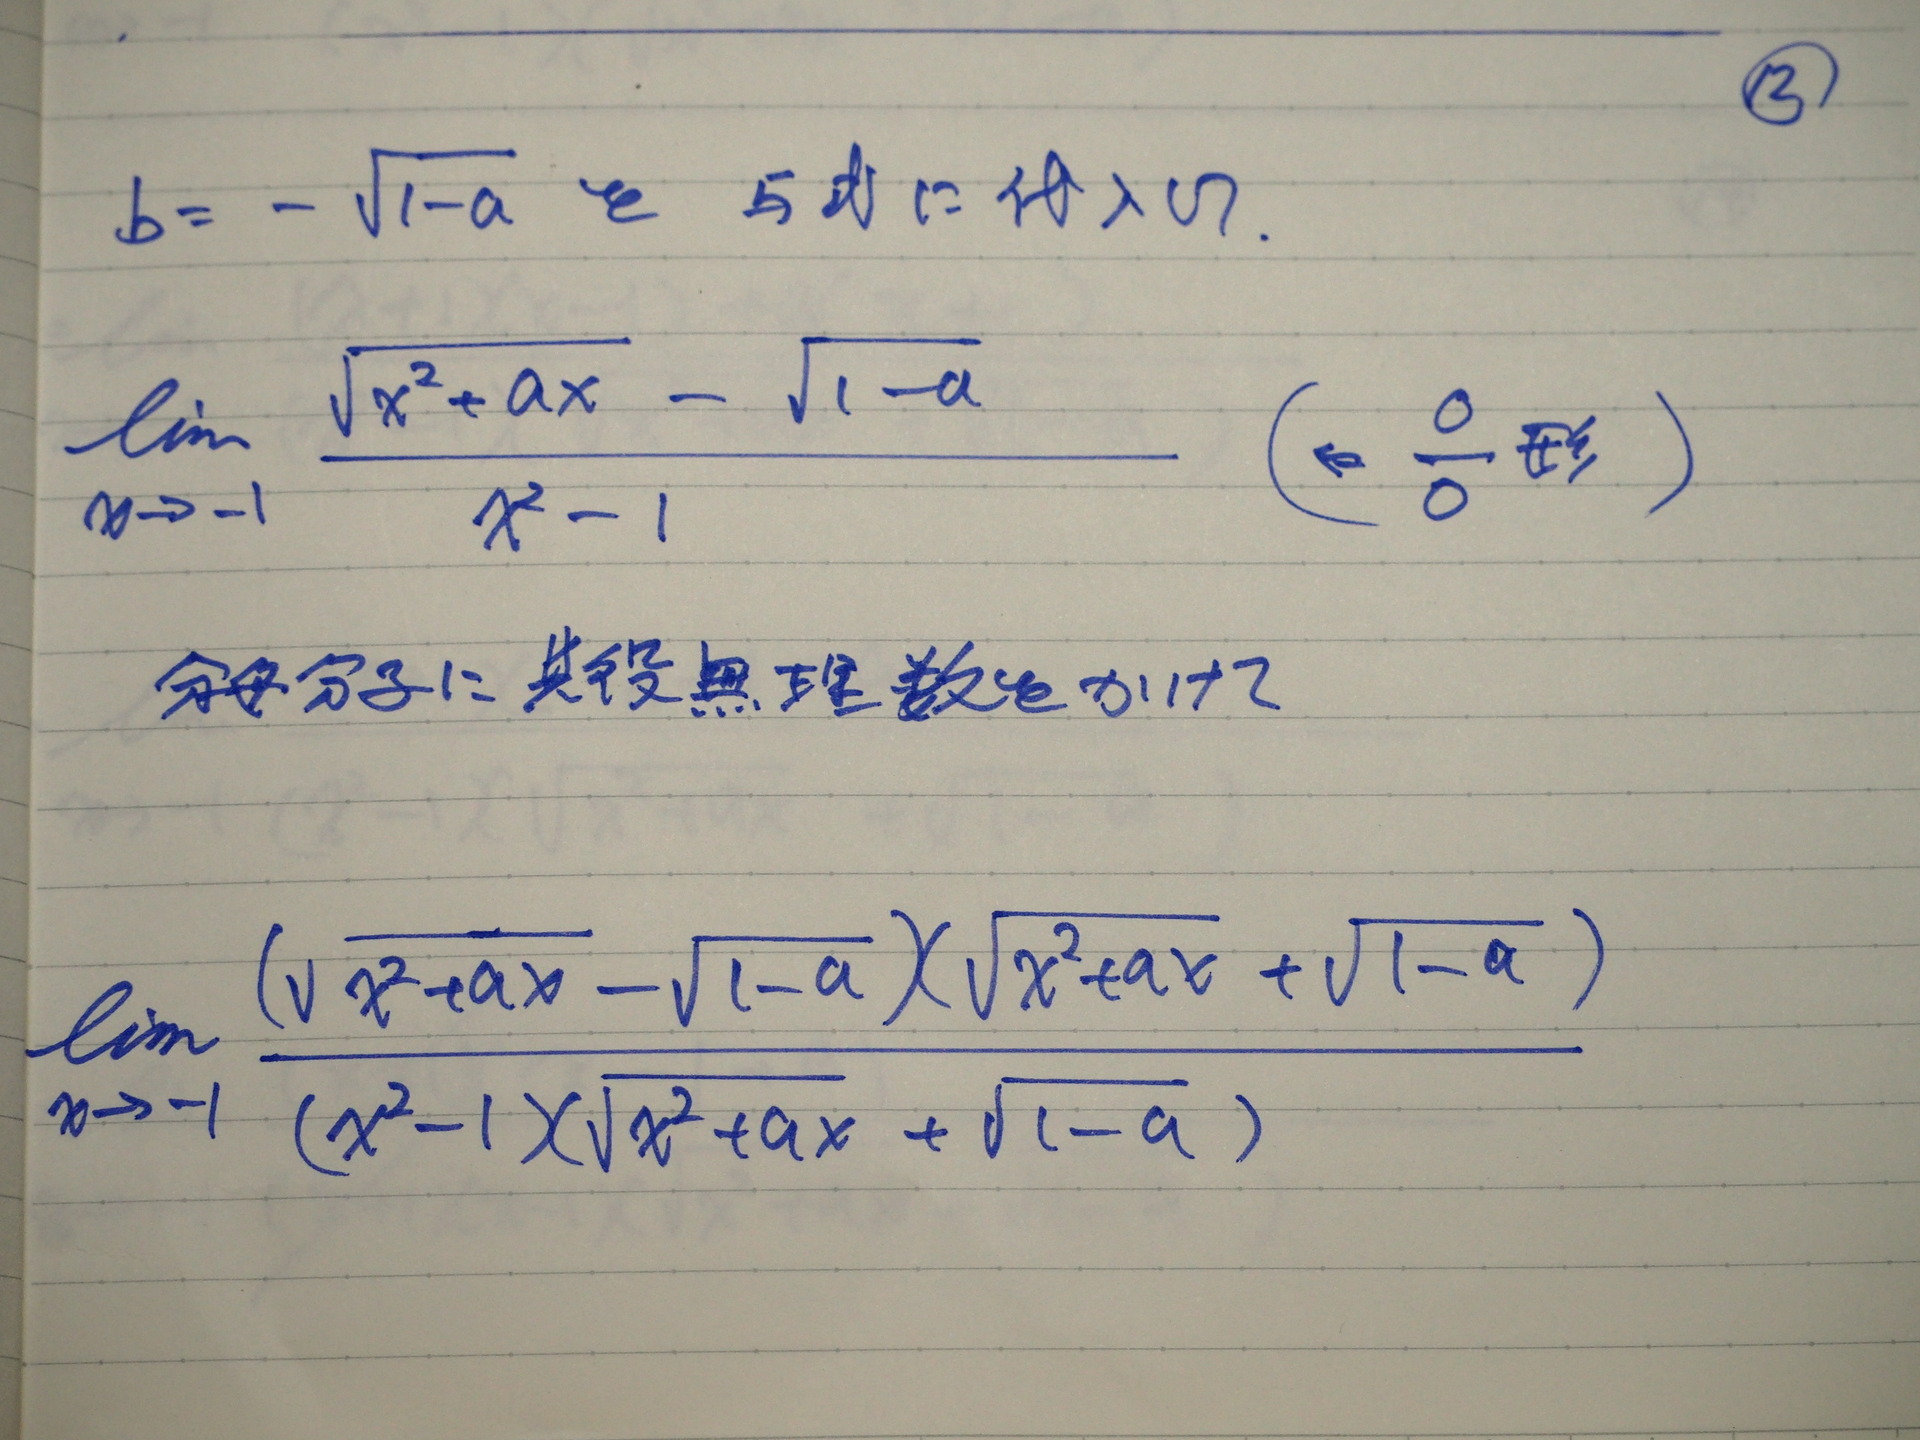 ⑬
b = -√(1-a) を 与式に代入して.
lim x→-1 (√(x²+ax) - √(1-a)) / (x²-1) (← 0/0 形)
分母分子に共役無理数をかけて
lim x→-1 (√(x²+ax) - √(1-a))(√(x²+ax) + √(1-a)) / (x²-1)(√(x²+ax) + √(1-a))